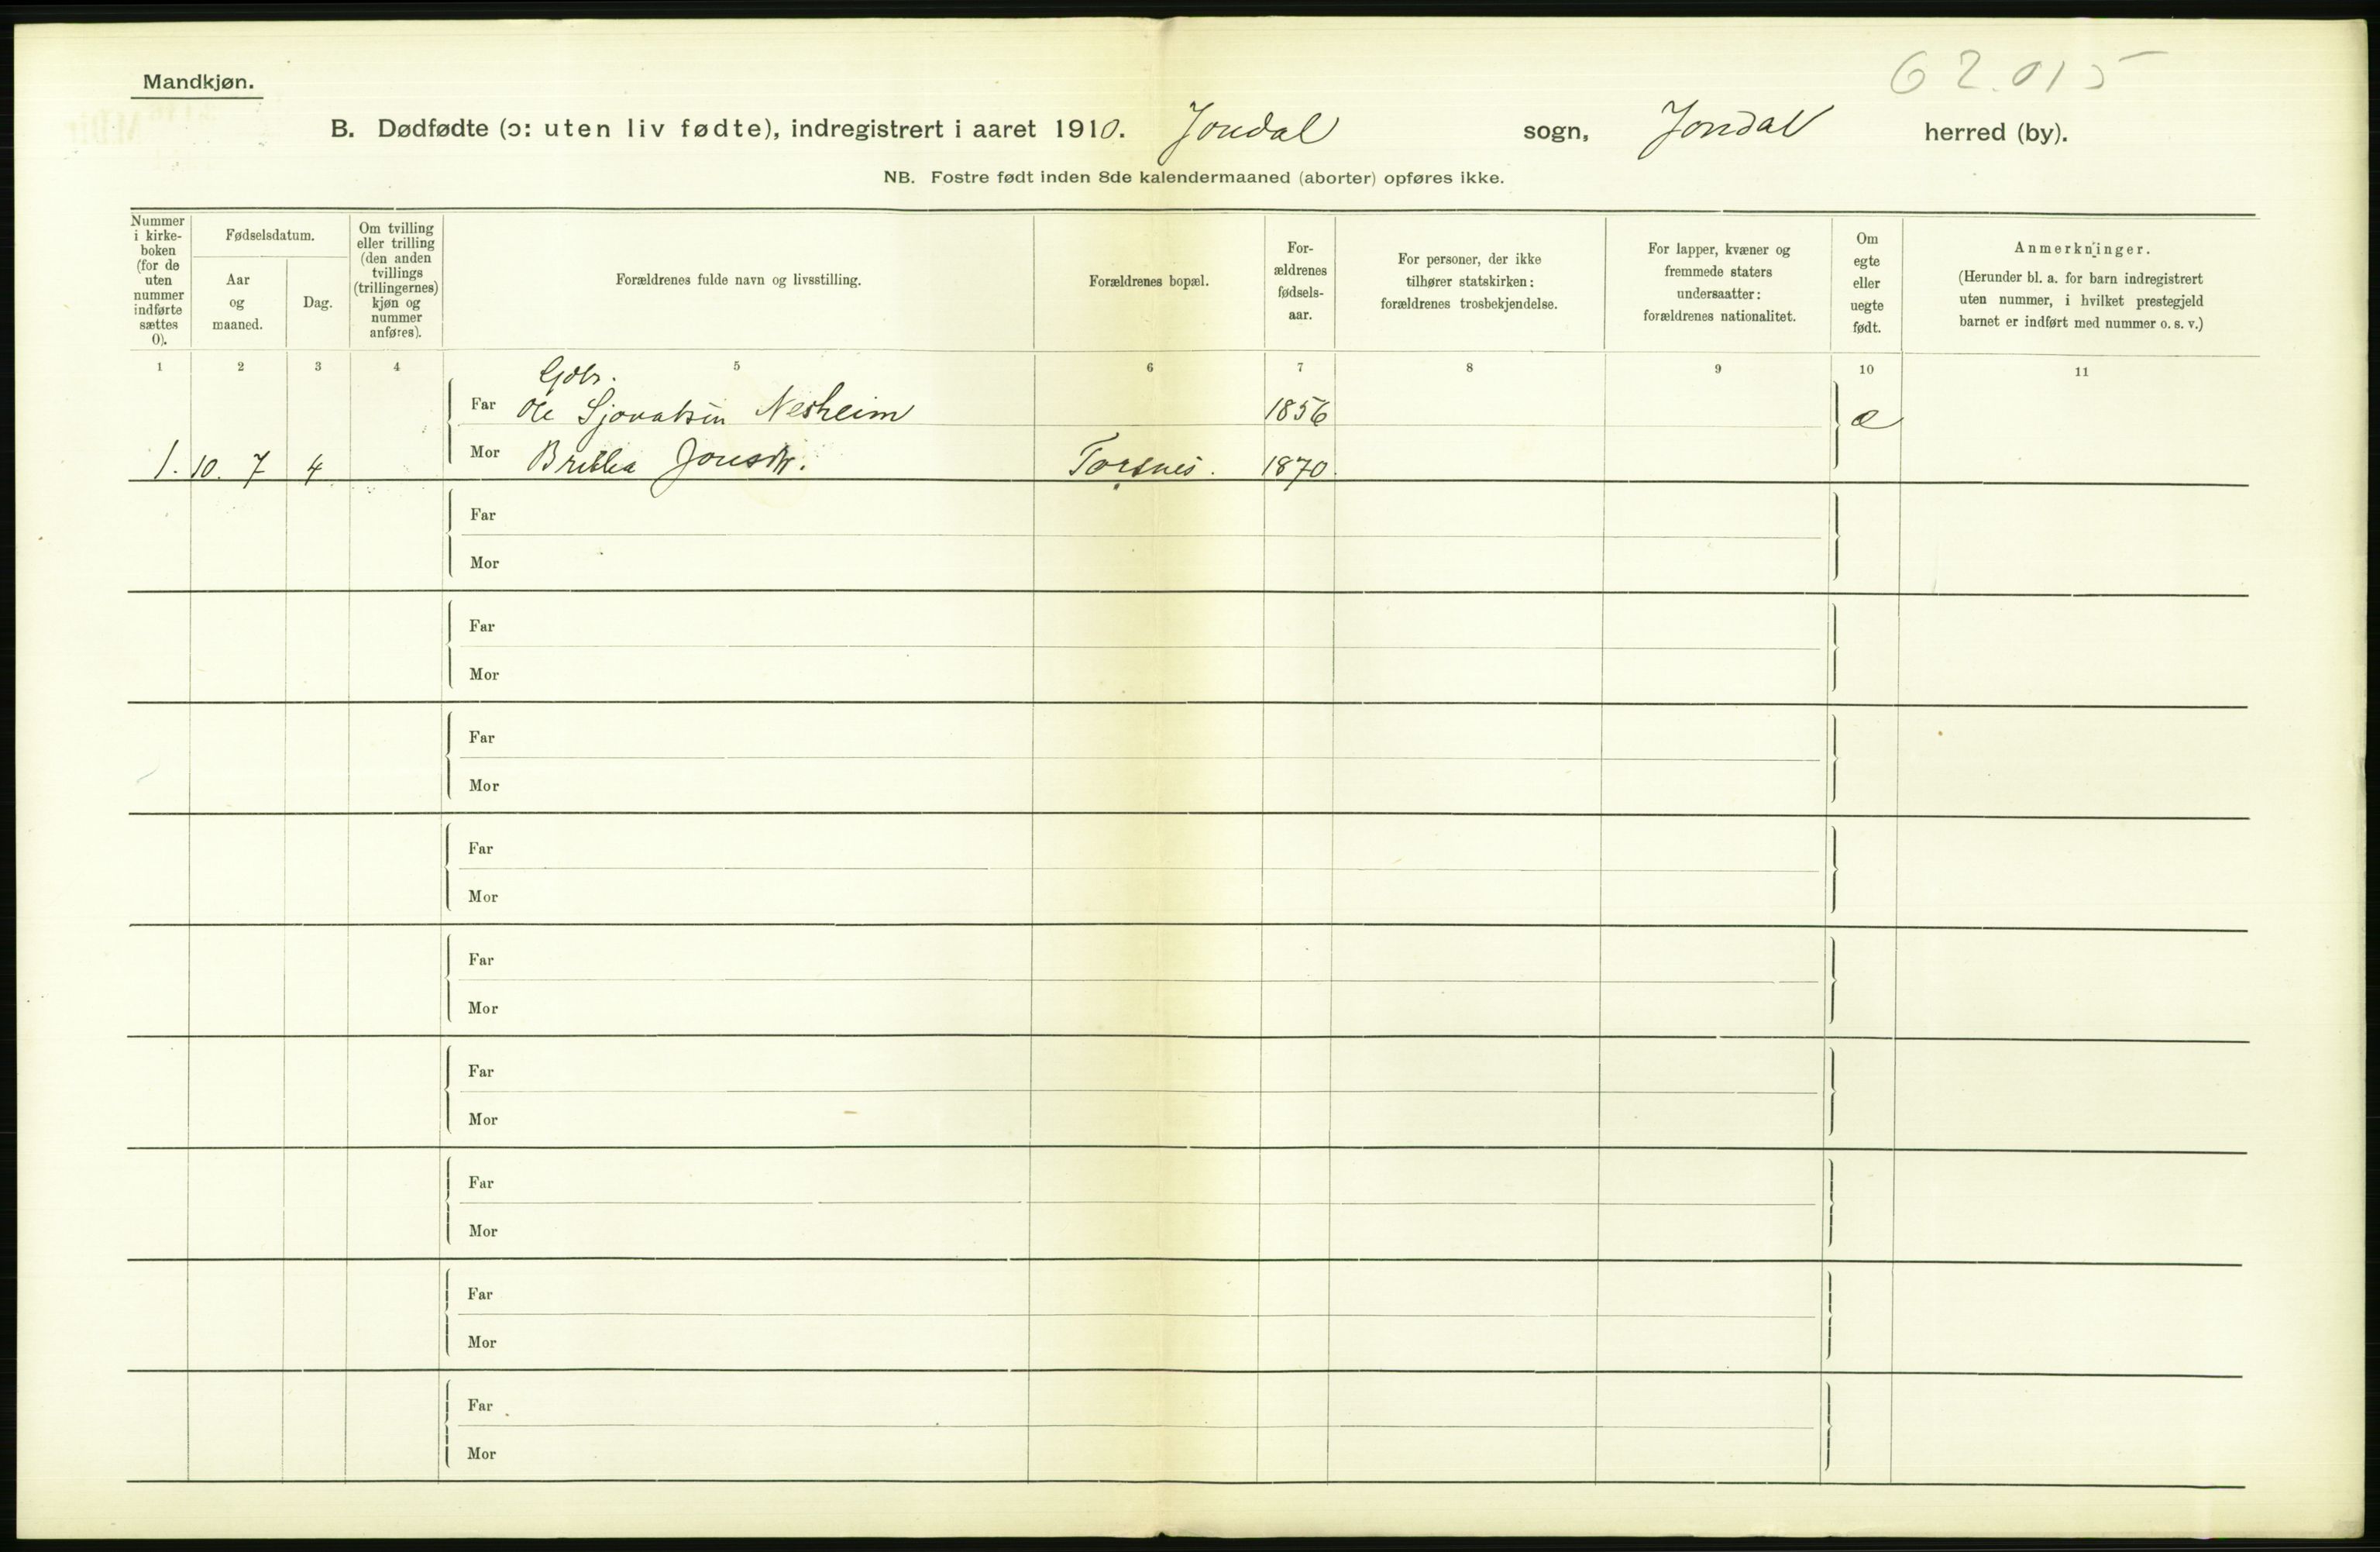 62.015
Mandkjøn.
B. Dødfødte (ɔ: uten liv fødte), indregistrert i aaret 1910. Jondal sogn, Jondal herred (by).
NB. Fostre født inden 8de kalendermaaned (aborter) opføres ikke.
Nummer
i kirke-
boken
(for de
uten
nummer
indførte
sættes
0).
Fødselsdatum.
Aar
og
maaned.
Dag.
Om tvilling
eller trilling
(den anden
tvillings
(trillingernes)
kjøn og
nummer
anføres).
Forældrenes fulde navn og livsstilling.
Forældrenes bopæl.
For-
ældrenes
fødsels-
aar.
For personer, der ikke
tilhører statskirken:
forældrenes trosbekjendelse.
For lapper, kvæner og
fremmede staters
undersaatter:
forældrenes nationalitet.
Om
egte
eller
uegte
født.
Anmerkninger.
(Herunder bl. a. for barn indregistrert
uten nummer, i hvilket prestegjeld
barnet er indført med nummer o. s. v.)
1 2 3 4 5 6 7 8 9 10 11
Gdbr.
Far Ole Sjovatsen Nesheim 1856 e
1. 10. 7 4 Mor Britha Jonsdtr. Torsnes. 1870.
Far
Mor
Far
Mor
Far
Mor
Far
Mor
Far
Mor
Far
Mor
Far
Mor
Far
Mor
Far
Mor